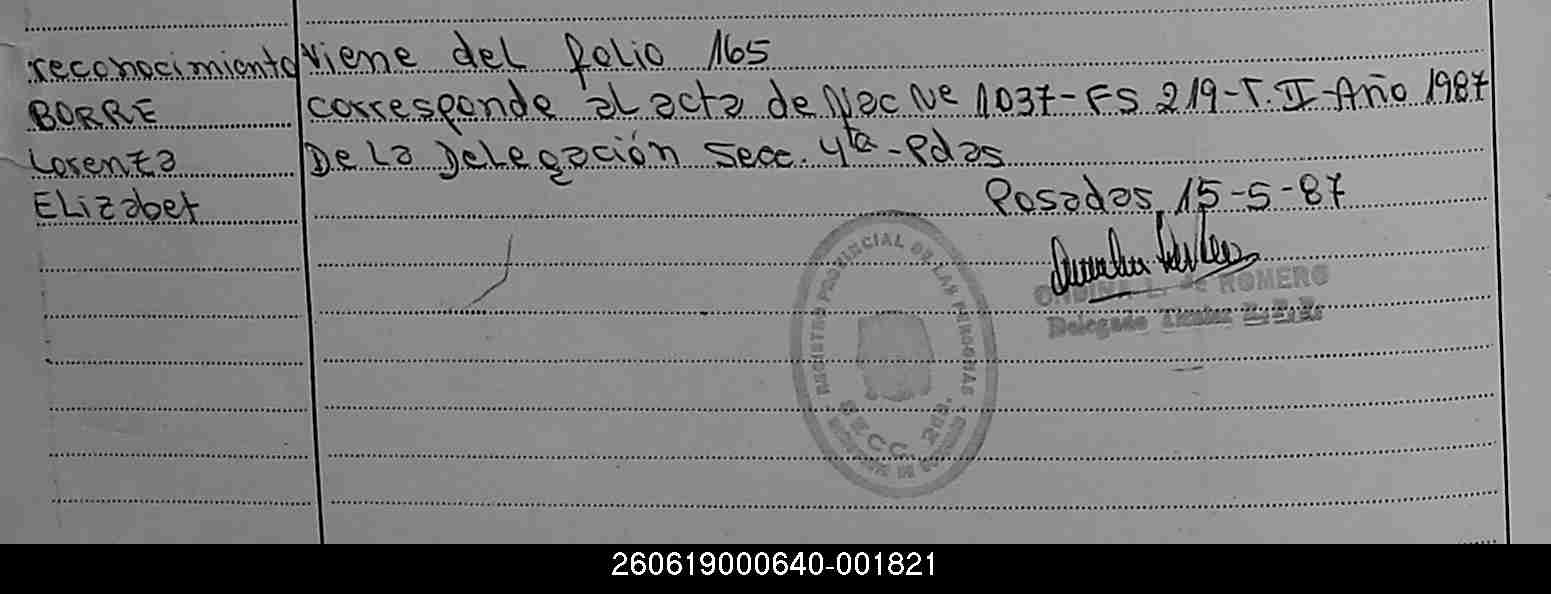 reconocimiento viene del folio 165
BORRE corresponde al acta de Nac Nº 1037-FS 219-T. II-Año 1987
Lorenza De La Delegación Secc. 4ta-Pdas
Elizabet Posadas, 15-5-87
REGISTRO PROVINCIAL DE LAS PERSONAS
SECC. 2da.
L. de ROMERO
Delegado
260619000640-001821